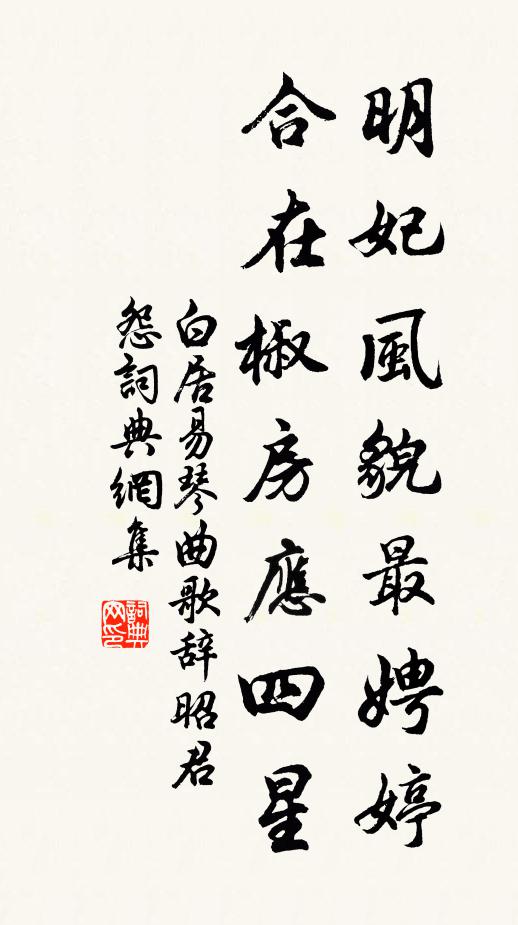 明妃風貌最娉婷
合在椒房應四星
白居易琴曲歌辞昭君
怨詞典網集
詞典网印